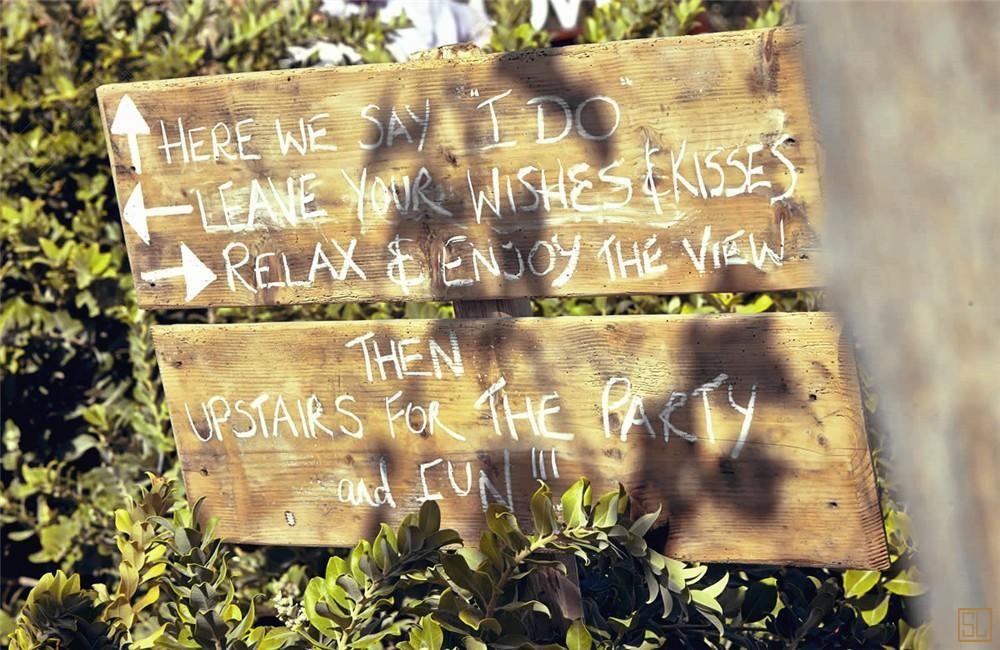 ↑ HERE WE SAY "I DO"
← LEAVE YOUR WISHES & KISSES
→ RELAX & ENJOY THE VIEW
THEN
UPSTAIRS FOR THE PARTY
and FUN !!!